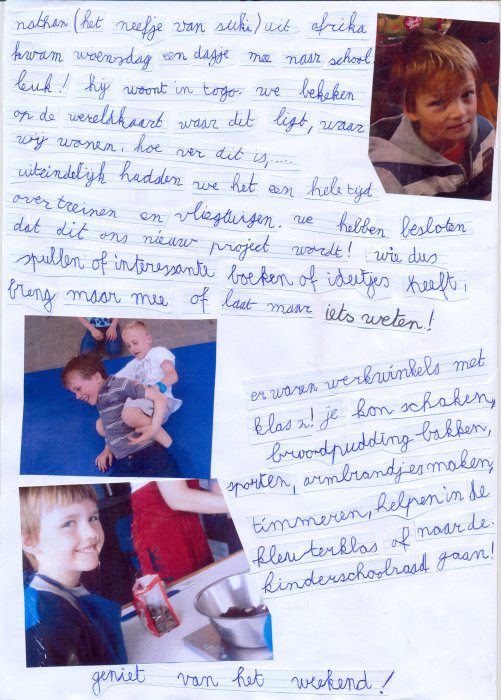 nathan (het neefje van suki) uit afrika
kwam woensdag een dagje mee naar school.
leuk! hij woont in togo. we bekeken
op de wereldkaart waar dit ligt, waar
wij wonen, hoe ver dit is,....
uiteindelijk hadden we het een hele tijd
over treinen en vliegtuigen. we hebben besloten
dat dit ons nieuw project wordt! wie dus
spullen of interessante boeken of ideetjes heeft,
breng maar mee of laat maar iets weten!
er waren werkwinkels met
klas 2! je kon schaken,
broodpudding bakken,
sporten, armbandjes maken,
timmeren, helpen in de
kleuterklas of naar de
kinderschoolraad gaan!
geniet van het weekend!